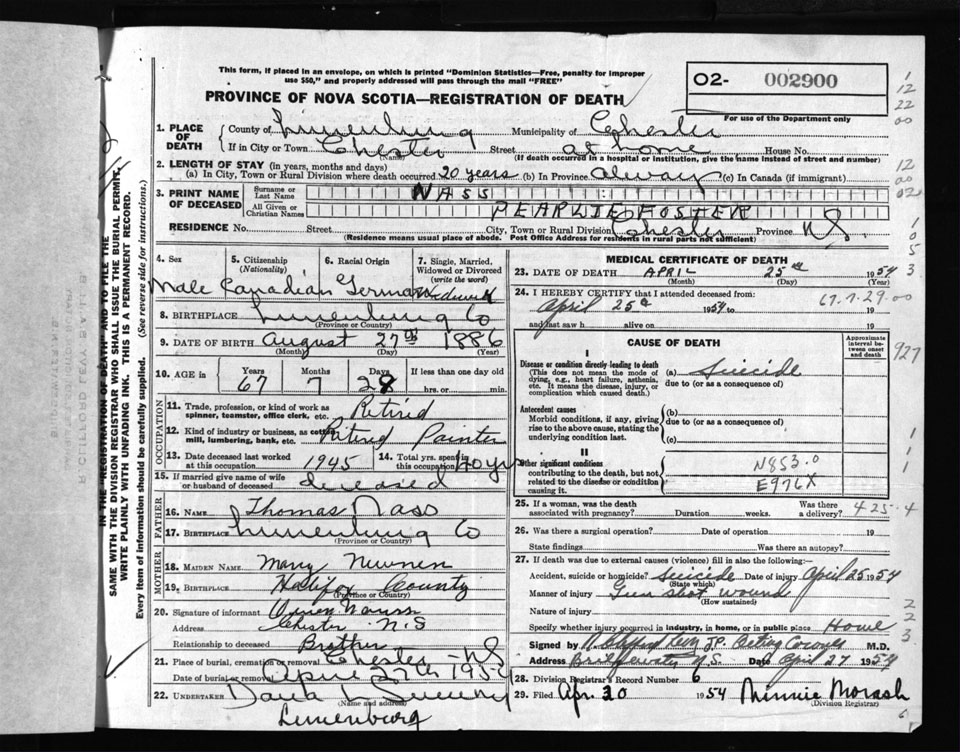 This form, if placed in an envelope, on which is printed "Dominion Statistics—Free, penalty for improper
use $50," and properly addressed will pass through the mail "FREE"
PROVINCE OF NOVA SCOTIA—REGISTRATION OF DEATH
O2- 002900
For use of the Department only
1. PLACE OF DEATH
County of Lunenburg Municipality of Chester
If in City or Town Chester Street at home House No.
(Name) (If death occurred in a hospital or institution, give the name instead of street and number)
2. LENGTH OF STAY (in years, months and days)
(a) In City, Town or Rural Division where death occurred 20 years (b) In Province always (c) In Canada (if immigrant)
3. PRINT NAME OF DECEASED
Surname or Last Name NASS
All Given or Christian Names PEARLIE FOSTER
RESIDENCE No. Street City, Town or Rural Division Chester Province N.S.
(Residence means usual place of abode. Post Office Address for residents in rural parts not sufficient)
4. Sex Male
5. Citizenship (Nationality) Canadian
6. Racial Origin German
7. Single, Married, Widowed or Divorced (write the word)
8. BIRTHPLACE Lunenburg Co
(Province or Country)
9. DATE OF BIRTH August 27th 1886
(Month) (Day) (Year)
10. AGE in Years 67 Months 7 Days 28 If less than one day old hrs. or min.
OCCUPATION
11. Trade, profession, or kind of work as spinner, teamster, office clerk, etc. Retired
12. Kind of industry or business, as cotton mill, lumbering, bank, etc. Retired Painter
13. Date deceased last worked at this occupation 1945
14. Total yrs. spent in this occupation 40 yrs
15. If married give name of wife or husband of deceased deceased
FATHER
16. NAME Thomas Nass
17. BIRTHPLACE Lunenburg Co
(Province or Country)
MOTHER
18. MAIDEN NAME Mary
19. BIRTHPLACE Halifax County
(Province or Country)
20. Signature of informant
Address Chester N.S
Relationship to deceased Brother
21. Place of burial, cremation or removal Chester N.S
Date of burial or removal April 27th 195
22. UNDERTAKER
(Name and address)
Lunenburg
MEDICAL CERTIFICATE OF DEATH
23. DATE OF DEATH APRIL 25th 1954
(Month) (Day) (Year)
24. I HEREBY CERTIFY that I attended deceased from:
April 25th 1954 to 19
and last saw h alive on 19
67.7.29.00
CAUSE OF DEATH
Approximate interval between onset and death
I
Disease or condition directly leading to death (a) Suicide
(This does not mean the mode of dying, e.g., heart failure, asthenia, etc. It means the disease, injury, or complication which caused death.)
due to (or as a consequence of)
Antecedent causes (b)
Morbid conditions, if any, giving rise to the above cause, stating the underlying condition last.
due to (or as a consequence of)
(c)
II
Other significant conditions contributing to the death, but not related to the disease or condition causing it.
N853.0
E976X
25. If a woman, was the death associated with pregnancy? Duration weeks. Was there a delivery? 4 25 - 4
26. Was there a surgical operation? Date of operation
State findings Was there an autopsy?
27. If death was due to external causes (violence) fill in also the following:—
Accident, suicide or homicide? Suicide Date of injury April 25 1954
(State which)
Manner of injury Gun shot wound
(How sustained)
Nature of injury
Specify whether injury occurred in industry, in home, or in public place Home
Signed by J.P. Acting Coroner M.D.
Address Bridgewater N.S. Date April 27 1954
28. Division Registrar's Record Number 6
29. Filed Apr. 30 1954 Minnie Morash
(Division Registrar)
WRITE PLAINLY WITH UNFADING INK. THIS IS A PERMANENT RECORD.
Every item of information should be carefully supplied. (See reverse side for instructions.)
SAME WITH THE DIVISION REGISTRAR WHO SHALL ISSUE THE BURIAL PERMIT.
IN THE "REGISTRATION OF DEATH" AND TO FILE THE
927